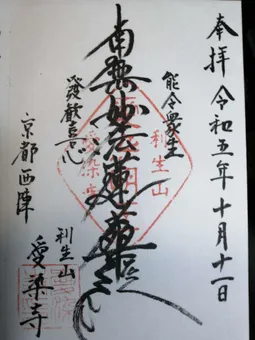 奉拝 令和五年十月十一日
能令衆生
利生山
南無妙法蓮華経
發歓喜心
京都西陣
利生山
愛染寺